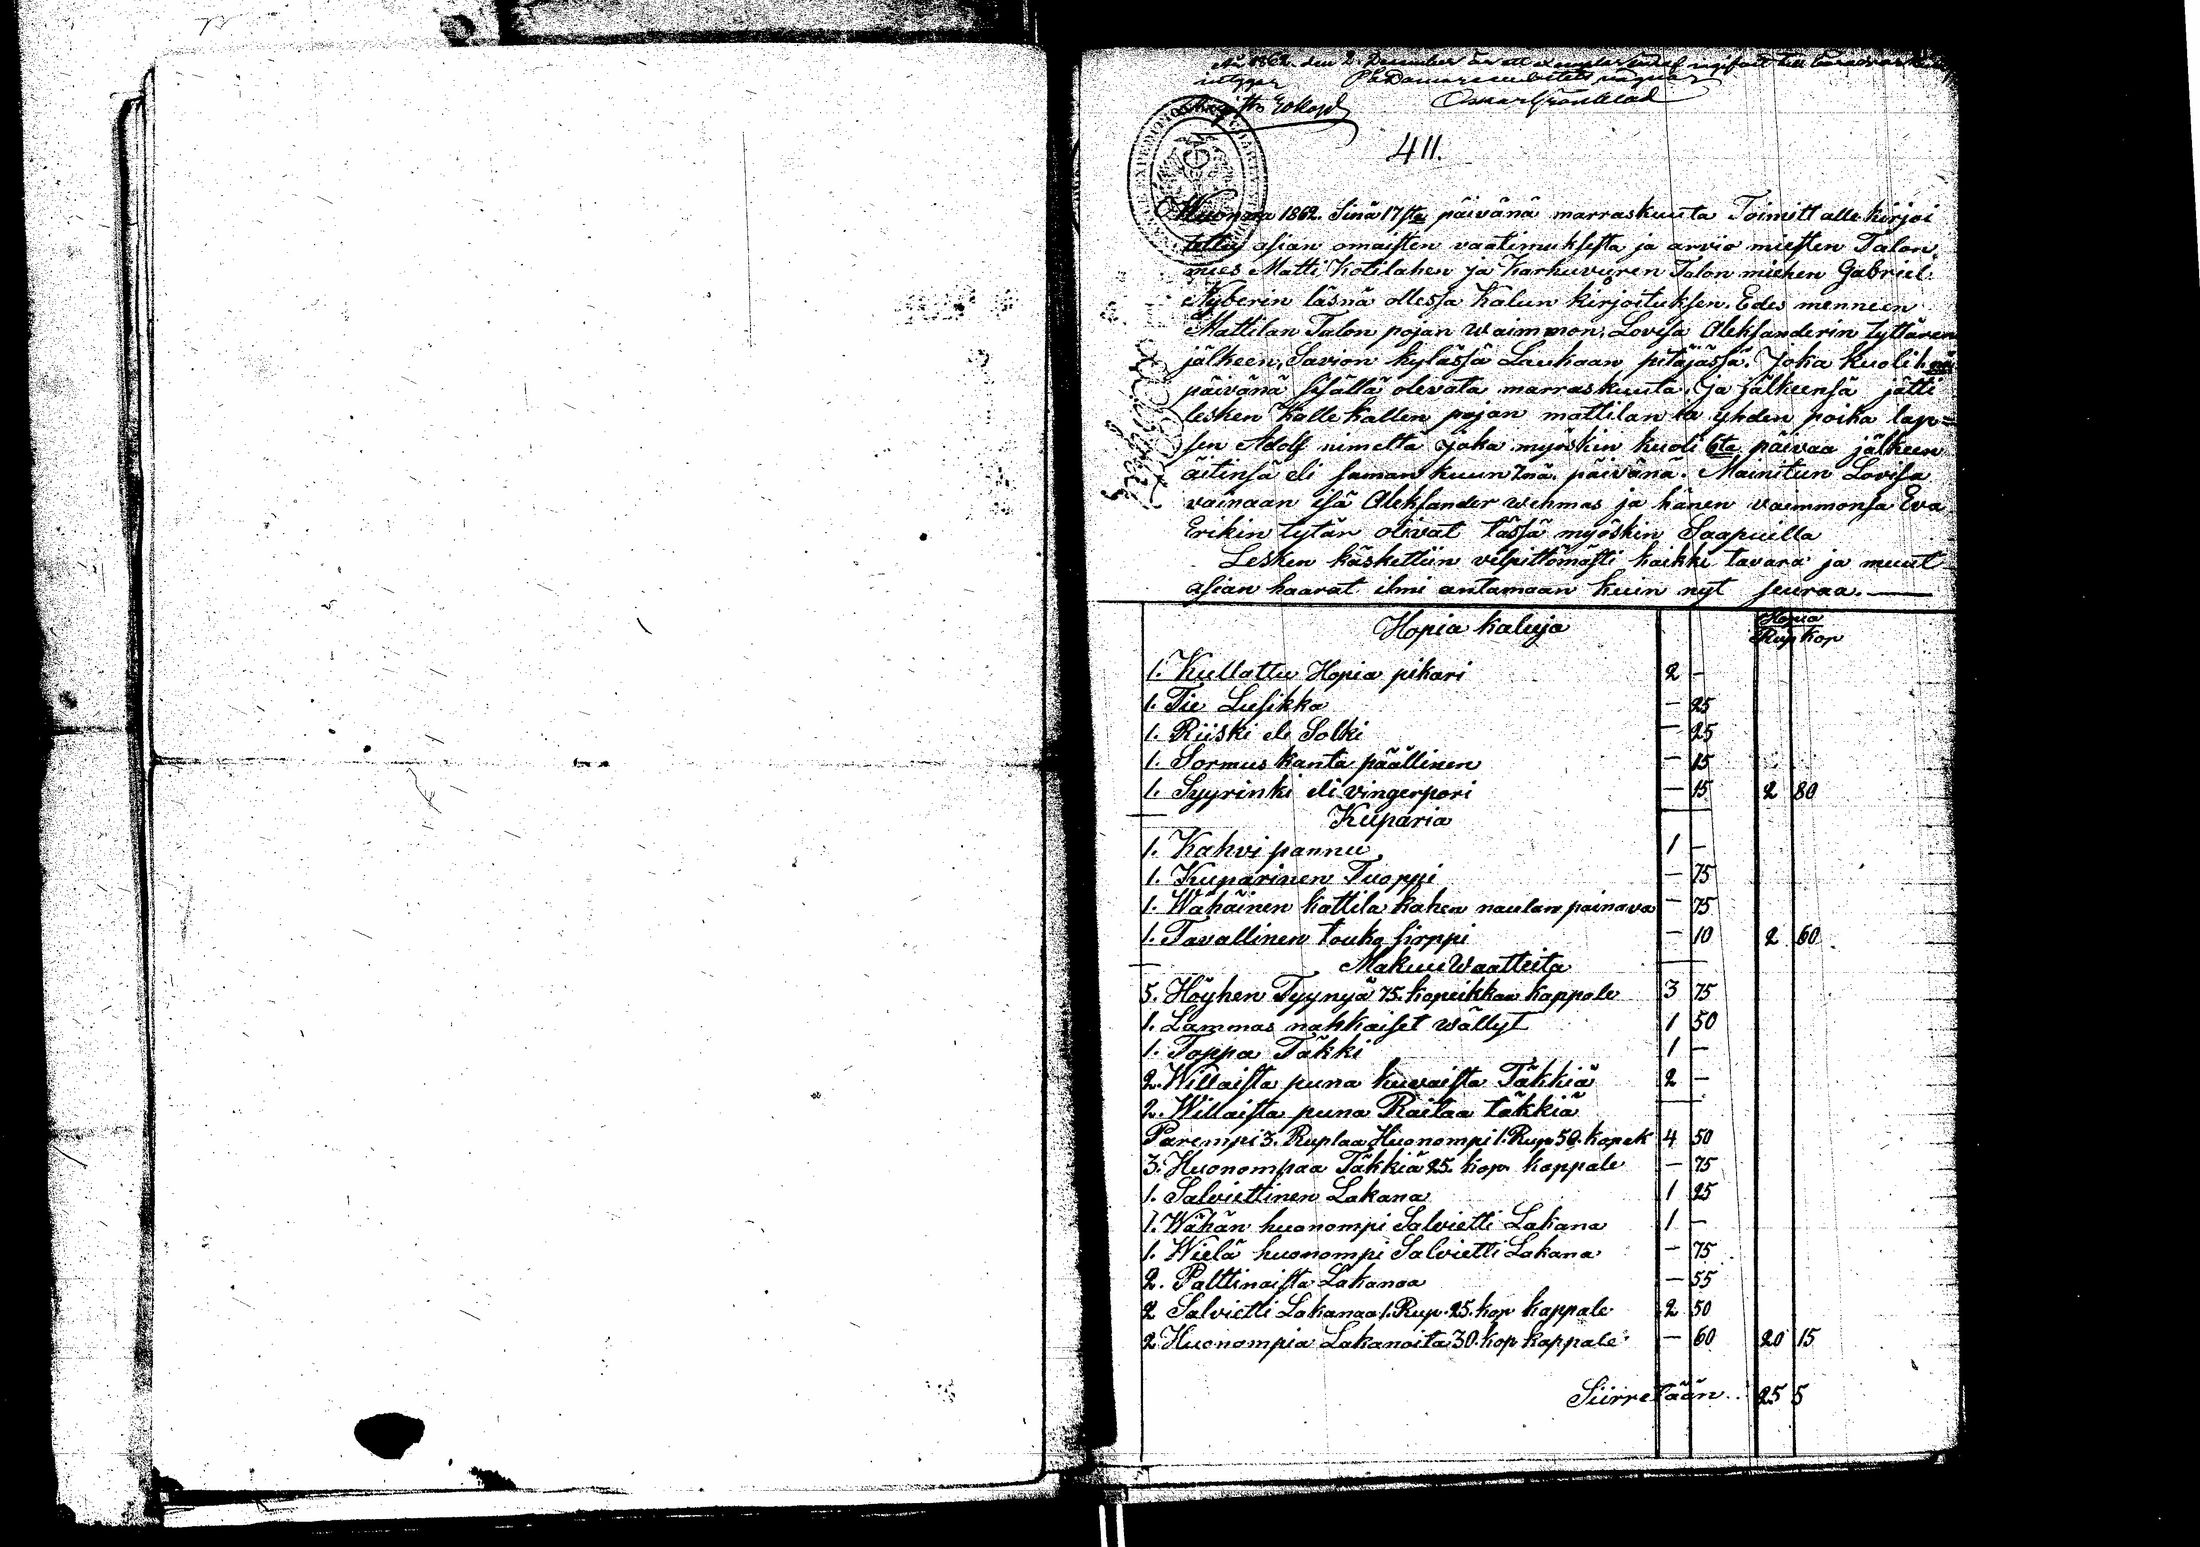 1862 den 2 December
Domareembetets vägnar
Oscar Grönblad
411.
Wuonna 1862. Sinä 17sta päivänä marraskuuta Toimitt alle kirjoi
tettu asian omaisten vaatimuksesta ja arvio miesten Talon
mies Matti Kotilahen ja Karhuvuoren Talon miehen Gabriel
Nyberin läsnä ollessa Kalun kirjoituksen. Edes menneen
Mattilan Talon pojan Waimmon, Lovisa Aleksanderin Tyttären
jälkeen, Savion kylässä Lauhaan pitäjässä. Joka kuoli
päivänä sisällä olevata marraskuuta. Ja jälkeensä jätti
lesken Kalle Kallen pojan mattilan ja yhden poika lap=
sen Adolf nimeltä joka myöskin kuoli 6ta päivää jälkeen
äitinsä eli saman kuun 7nä päivänä. Mainitun Lovisa
vainaan isä Aleksander Wehmas ja hänen vaemmonsa Eva
Erikin tytär olivat tässä myöskin Saapuilla
Lesken käskettiin vilpittömästi kaikki tavara ja muut
asian haarat ilmi antamaan kuin nyt seuraa.—
Hopia kaluja Hopia
Rup kop
1. Kullattu Hopia pikari 2 –
1. Tie Lusikka – 25
1. Riiski eli Solki – 25
1. Sormus kanta päällinen – 15
1. Syyrinki eli vingerpori – 15 2 80
Kuparia
1. Kahvi pannu 1 –
1. Kuparinen Tuoppi – 75
1. Wähäinen kattila kahen naulan painava – 75
1. Tavallinen touko sirppi – 10 2 60
Makuu Waatteita
5. Höyhen Tyynyä 75. kopeikkaa kappale 3 75
1. Lammas nahkaiset wällyt 1 50
1. Toppa Täkki 1 –
2. Willaista puna kuvaista Täkkiä 2 –
2. Willaista puna Raitaa täkkiä
Parempi 3. Ruplaa Huonompi 1. Rup 50. kopek 4 50
3. Huonompaa Täkkiä 25. kop. kappale – 75
1. Salviettinen Lakana 1 25
1. Wähän huonompi Salvietti Lakana 1 –
1. Wielä huonompi Salvietti Lakana – 75
2. Palttinaista Lakanaa – 55
2 Salvietti Lakanaa 1. Rup. 25. kop kappale 2 50
2 Huonompia Lakanoita 30. kop kappale – 60 20 15
Siirretään.. 25 5